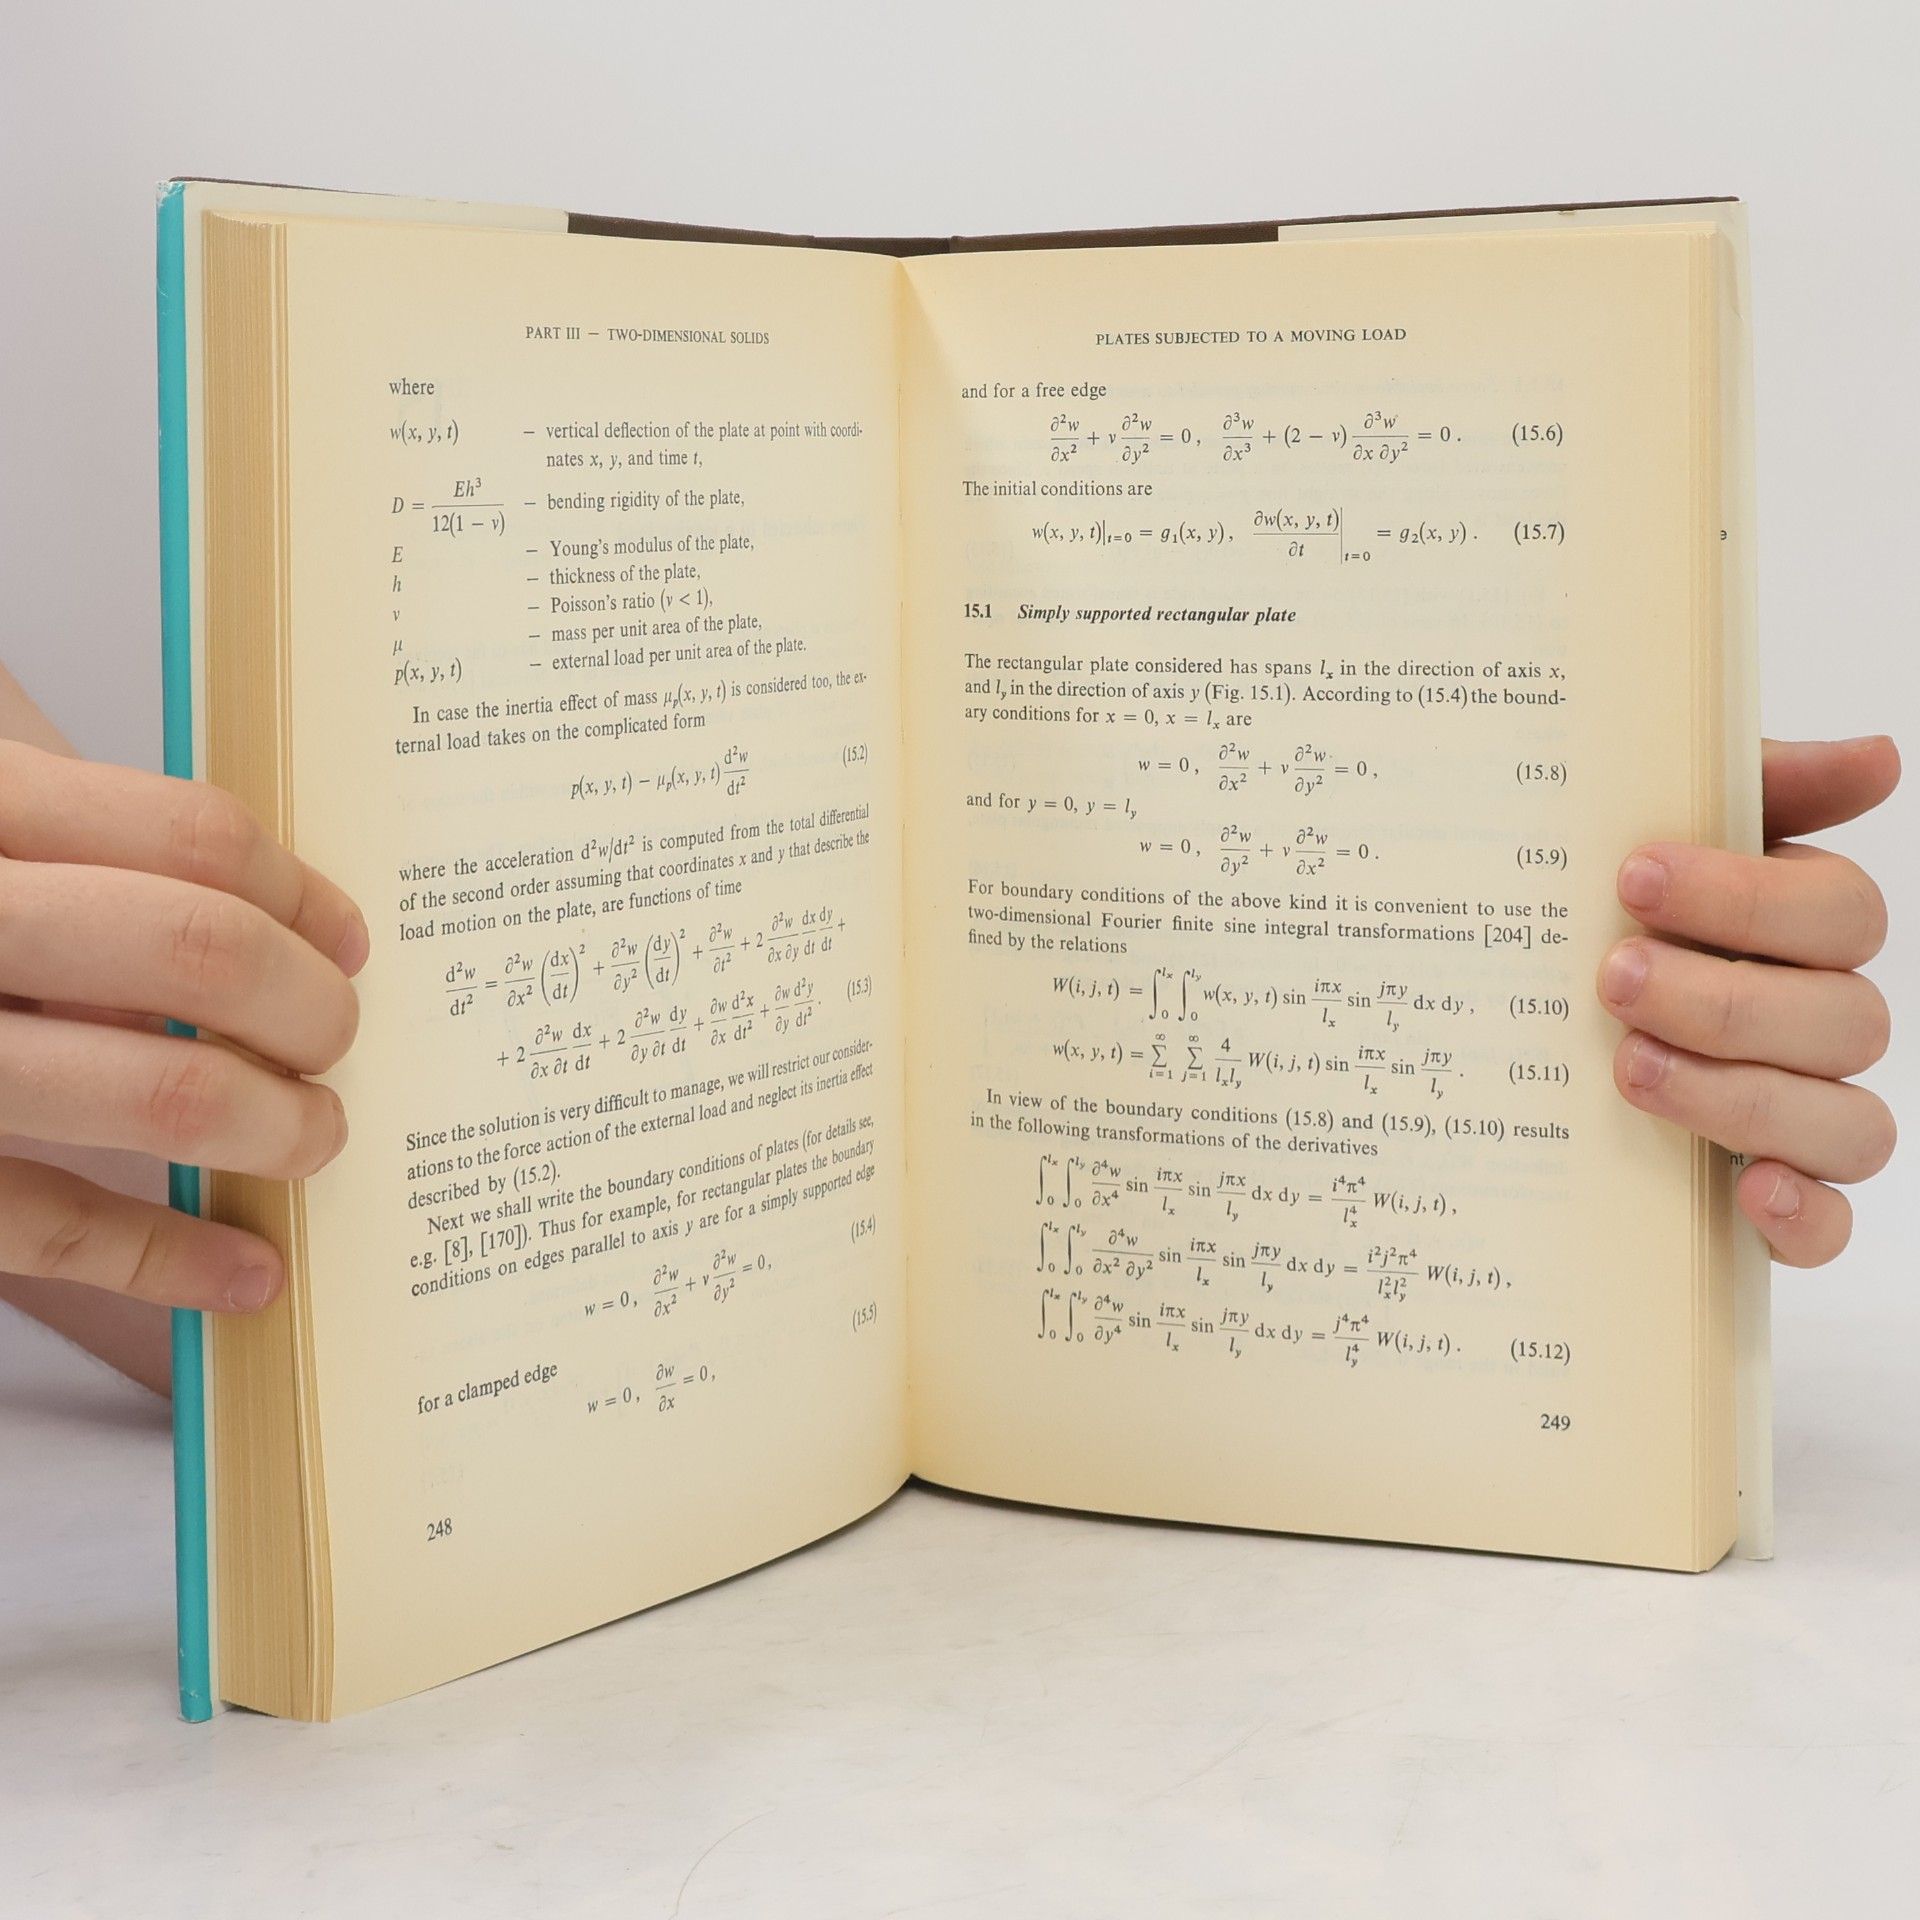 PART III — TWO-DIMENSIONAL SOLIDS
where
w(x, y, t) — vertical deflection of the plate at point with coordi-
nates x, y, and time t,
D = Eh³ / 12(1 − ν) — bending rigidity of the plate,
E — Young's modulus of the plate,
h — thickness of the plate,
ν — Poisson's ratio (ν < 1),
μ — mass per unit area of the plate,
p(x, y, t) — external load per unit area of the plate.
In case the inertia effect of mass μₚ(x, y, t) is considered too, the ex-
ternal load takes on the complicated form
p(x, y, t) − μₚ(x, y, t) d²w/dt² (15.2)
where the acceleration d²w/dt² is computed from the total differential
of the second order assuming that coordinates x and y that describe the
load motion on the plate, are functions of time
d²w/dt² = ∂²w/∂x² (dx/dt)² + ∂²w/∂y² (dy/dt)² + ∂²w/∂t² + 2 ∂²w/∂x ∂y dx/dt dy/dt +
+ 2 ∂²w/∂x ∂t dx/dt + 2 ∂²w/∂y ∂t dy/dt + ∂w/∂x d²x/dt² + ∂w/∂y d²y/dt² . (15.3)
Since the solution is very difficult to manage, we will restrict our consider-
ations to the force action of the external load and neglect its inertia effect
described by (15.2).
Next we shall write the boundary conditions of plates (for details see,
e.g. [8], [170]). Thus for example, for rectangular plates the boundary
conditions on edges parallel to axis y are for a simply supported edge
w = 0, ∂²w/∂x² + ν ∂²w/∂y² = 0, (15.4)
for a clamped edge
w = 0, ∂w/∂x = 0, (15.5)
248
PLATES SUBJECTED TO A MOVING LOAD
and for a free edge
∂²w/∂x² + ν ∂²w/∂y² = 0, ∂³w/∂x³ + (2 − ν) ∂³w/∂x ∂y² = 0. (15.6)
The initial conditions are
w(x, y, t)|t=0 = g₁(x, y), ∂w(x, y, t)/∂t |t=0 = g₂(x, y). (15.7)
15.1 Simply supported rectangular plate
The rectangular plate considered has spans lₓ in the direction of axis x,
and l_y in the direction of axis y (Fig. 15.1). According to (15.4) the bound-
ary conditions for x = 0, x = lₓ are
w = 0, ∂²w/∂x² + ν ∂²w/∂y² = 0, (15.8)
and for y = 0, y = l_y
w = 0, ∂²w/∂y² + ν ∂²w/∂x² = 0. (15.9)
For boundary conditions of the above kind it is convenient to use the
two-dimensional Fourier finite sine integral transformations [204] de-
fined by the relations
W(i, j, t) = ∫₀^lₓ ∫₀^l_y w(x, y, t) sin iπx/lₓ sin jπy/l_y dx dy, (15.10)
w(x, y, t) = ∑_{i=1}^∞ ∑_{j=1}^∞ 4/lₓl_y W(i, j, t) sin iπx/lₓ sin jπy/l_y . (15.11)
In view of the boundary conditions (15.8) and (15.9), (15.10) results
in the following transformations of the derivatives
∫₀^lₓ ∫₀^l_y ∂⁴w/∂x⁴ sin iπx/lₓ sin jπx/l_y dx dy = i⁴π⁴/lₓ⁴ W(i, j, t),
∫₀^lₓ ∫₀^l_y ∂⁴w/∂x² ∂y² sin iπx/lₓ sin jπy/l_y dx dy = i²j²π⁴/lₓ²l_y² W(i, j, t),
∫₀^lₓ ∫₀^l_y ∂⁴w/∂y⁴ sin iπx/lₓ sin jπy/l_y dx dy = j⁴π⁴/l_y⁴ W(i, j, t). (15.12)
249